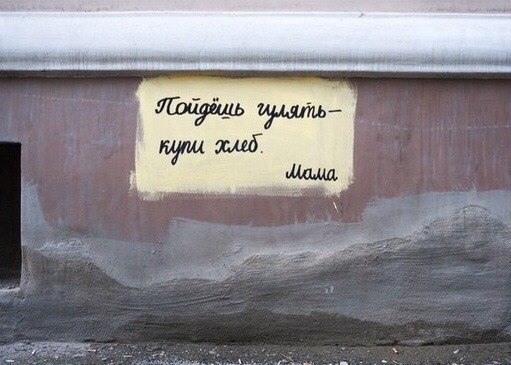 Пойдёшь гулять –
купи хлеб.
Мама